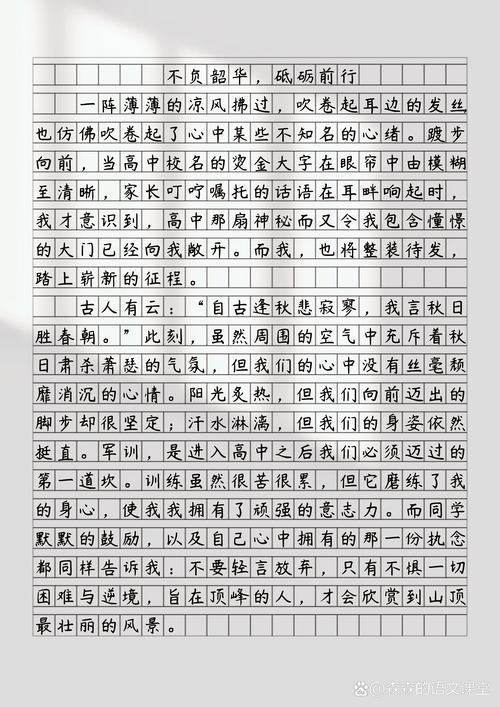 不负韶华，砥砺前行
一阵薄薄的凉风拂过，吹卷起耳边的发丝
也仿佛吹卷起了心中某些不知名的心绪。踱步
向前，当高中校名的烫金大字在眼帘中由模糊
至清晰，家长叮咛嘱托的话语在耳畔响起时，
我才意识到，高中那扇神秘而又令我包含憧憬
的大门已经向我敞开。而我，也将整装待发，
踏上崭新的征程。
古人有云：“自古逢秋悲寂寥，我言秋日
胜春朝。”此刻，虽然周围的空气中充斥着秋
日肃杀萧瑟的气氛，但我们的心中没有丝毫颓
靡消沉的心情。阳光炙热，但我们向前迈出的
脚步却很坚定；汗水淋漓，但我们的身姿依然
挺直。军训，是进入高中之后我们必须迈过的
第一道坎。训练虽然很苦很累，但它磨练了我
的身心，使我我拥有了顽强的意志力。而同学
默默的鼓励，以及自己心中拥有的那一份执念
都同样告诉我：不要轻言放弃，只有不惧一切
困难与逆境，旨在顶峰的人，才会欣赏到山顶
最壮丽的风景。
森森的语文课堂